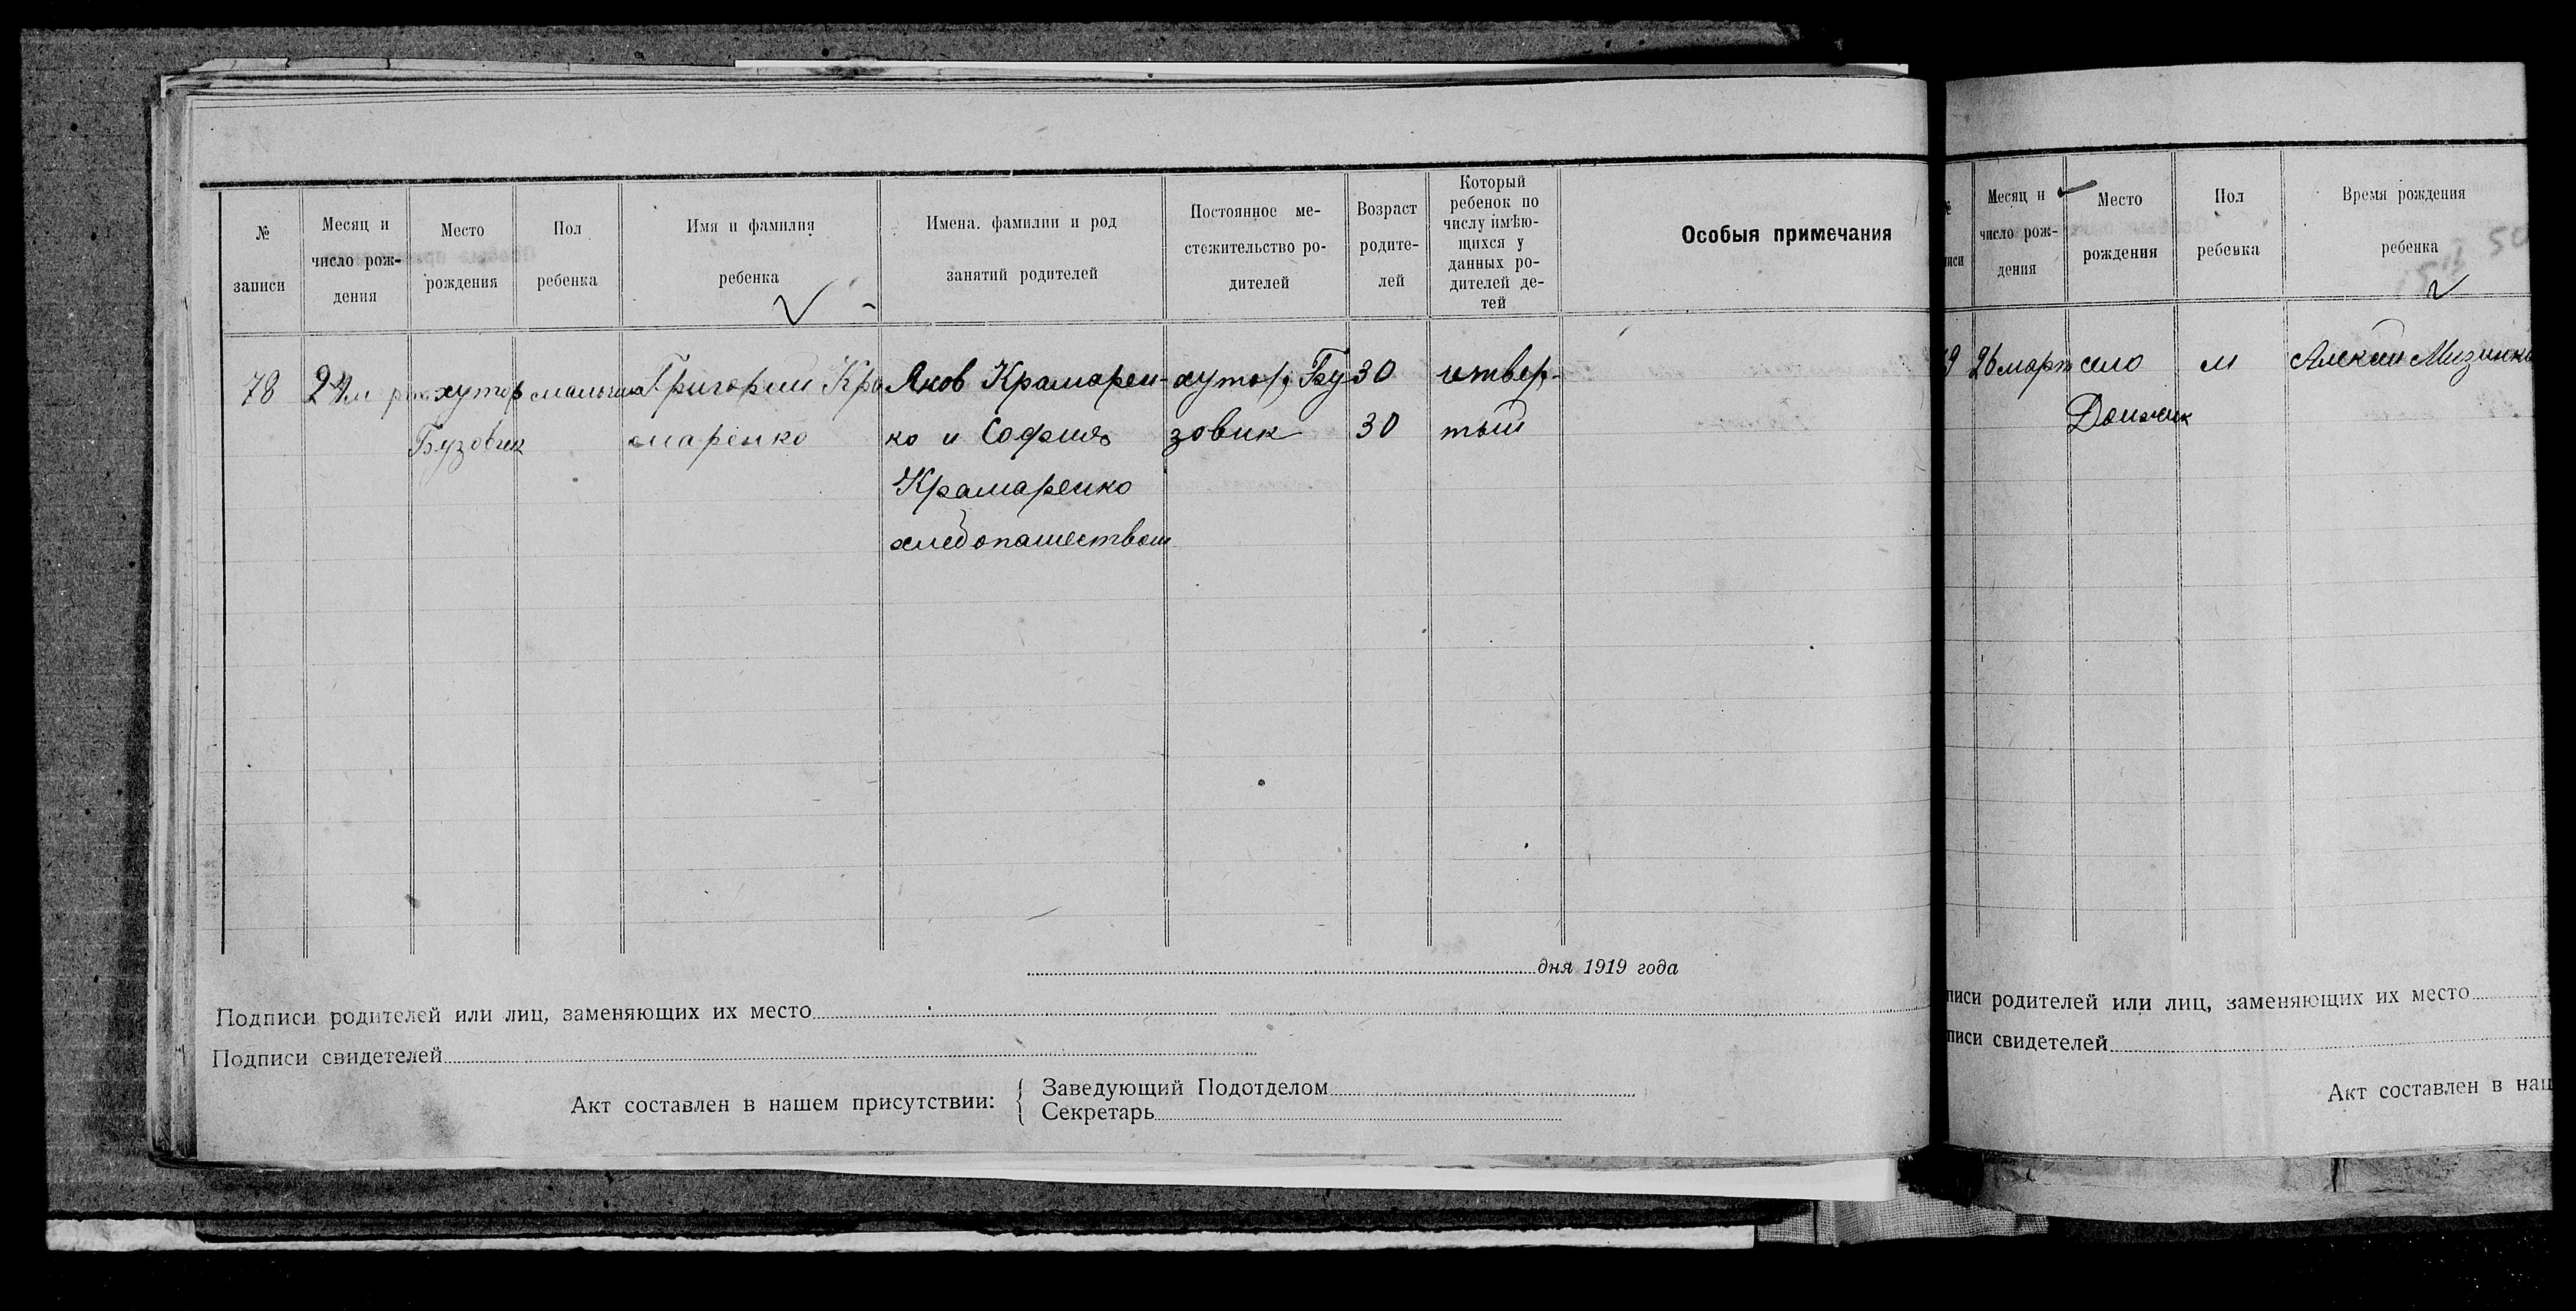 № записи
Месяц и число рождения
Место рождения
Пол ребенка
Имя и фамилия ребенка
Имена. фамилии и род занятий родителей
Постоянное местожительство родителей
Возраст родителей
Который ребенок по числу имѣющихся у данных родителей детей
Особыя примечания
78
24
хутор
Бузовик
мальчик
Григорий Кра
маренко
Яков Крамарен-
ко и София
Крамаренко
хлебопашеством
хутор Бу-
зовик
30
30
четвер-
тый
дня 1919 года
Подписи родителей или лиц, заменяющих их место
Подписи свидетелей
Акт составлен в нашем присутствии:
Заведующий Подотделом
Секретарь
Месяц и число рождения
Место рождения
Пол ребенка
Время рождения ребенка
9
26 март
село
м
Алексей
писи родителей или лиц, заменяющих их место
писи свидетелей
Акт составлен в наш